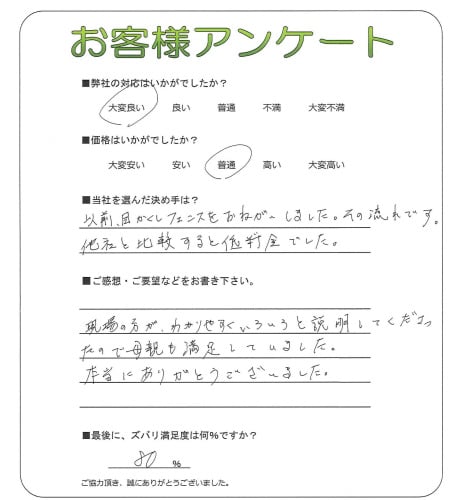 お客様アンケート
■弊社の対応はいかがでしたか？
大変良い 良い 普通 不満 大変不満
■価格はいかがでしたか？
大変安い 安い 普通 高い 大変高い
■当社を選んだ決め手は？
以前、目かくしフェンスをおねがいしました。その流れです。
他社と比較すると低料金でした。
■ご感想・ご要望などをお書き下さい。
現場の方が、わかりやすくいろいろと説明してくださっ
たので母親も満足していました。
本当にありがとうございました。
■最後に、ズバリ満足度は何％ですか？
80 ％
ご協力頂き、誠にありがとうございました。